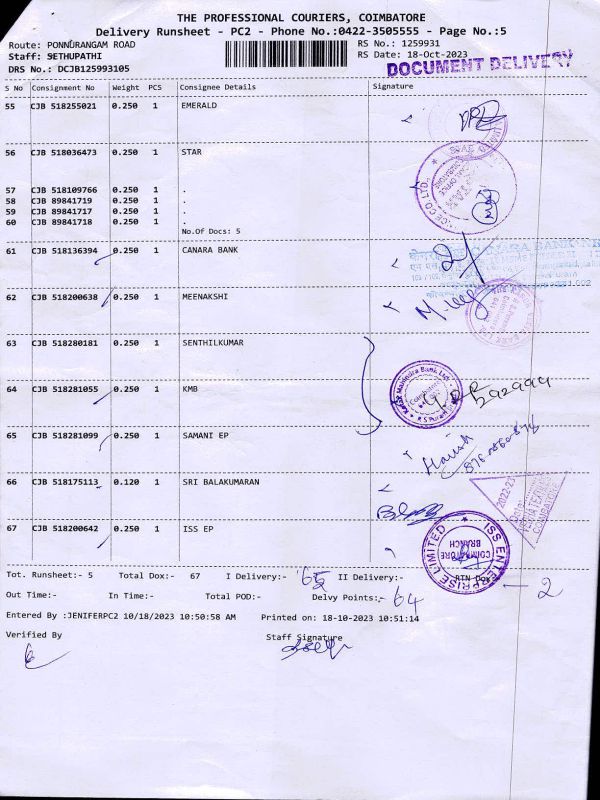 THE PROFESSIONAL COURIERS, COIMBATORE
Delivery Runsheet - PC2 - Phone No.:0422-3505555 - Page No.:5
Route: PONNURANGAM ROAD RS No.: 1259931
Staff: SETHUPATHI RS Date: 18-Oct-2023
DRS No.: DCJB125993105 DOCUMENT DELIVERY
S No Consignment No Weight PCS Consignee Details Signature
55 CJB 518255021 0.250 1 EMERALD
56 CJB 518036473 0.250 1 STAR
57 CJB 518109766 0.250 1 .
58 CJB 89841719 0.250 1 .
59 CJB 89841717 0.250 1 .
60 CJB 89841718 0.250 1 .
No.Of Docs: 5
61 CJB 518136394 0.250 1 CANARA BANK
CANARA BANK
62 CJB 518200638 0.250 1 MEENAKSHI
63 CJB 518280181 0.250 1 SENTHILKUMAR
Kotak Mahindra Bank Ltd.
64 CJB 518281055 0.250 1 KMB
65 CJB 518281099 0.250 1 SAMANI EP
Harish
66 CJB 518175113 0.120 1 SRI BALAKUMARAN
2022-23
COIMBATORE
67 CJB 518200642 0.250 1 ISS EP
ISS ENTERPRISE LIMITED
COIMBATORE
BRANCH
Tot. Runsheet:- 5 Total Dox:- 67 I Delivery:- 65 II Delivery:- RTN Dox - 2
Out Time:- In Time:- Total POD:- Delvy Points:- 64
Entered By :JENIFERPC2 10/18/2023 10:50:58 AM Printed on: 18-10-2023 10:51:14
Verified By Staff Signature